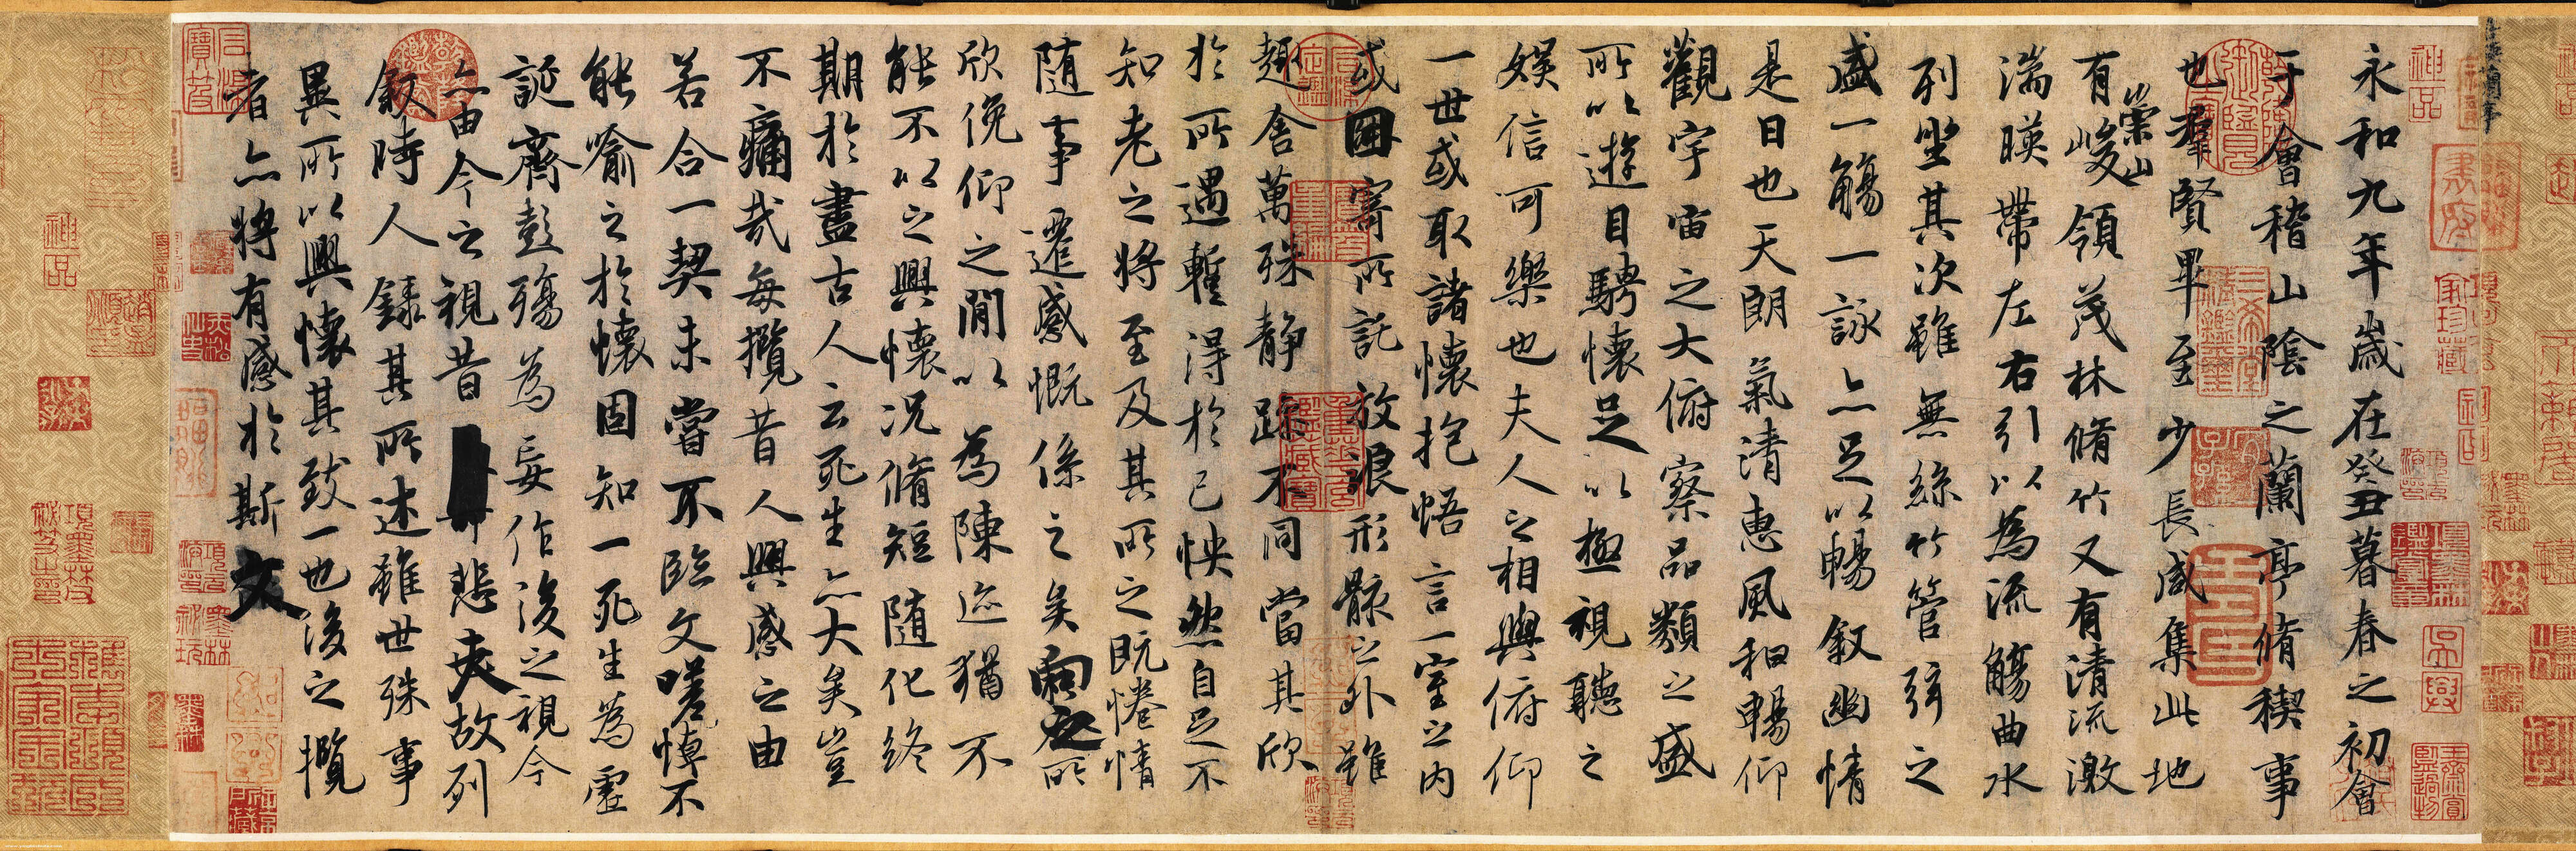 永和九年歲在癸丑暮春之初會
于會稽山陰之蘭亭脩稧事
也羣賢畢至少長咸集此地
有崇山峻領茂林脩竹又有清流激
湍暎帶左右引以為流觴曲水
列坐其次雖無絲竹管弦之
盛一觴一詠亦足以暢叙幽情
是日也天朗氣清惠風和暢仰
觀宇宙之大俯察品類之盛
所以遊目騁懷足以極視聽之
娛信可樂也夫人之相與俯仰
一世或取諸懷抱悟言一室之內
或因寄所託放浪形骸之外雖
趣舍萬殊靜躁不同當其欣
於所遇暫得於己怏然自足不
知老之將至及其所之既惓情
隨事遷感慨係之矣向之所
欣俛仰之間以為陳迹猶不
能不以之興懷況脩短隨化終
期於盡古人云死生亦大矣豈
不痛哉每攬昔人興感之由
若合一契未嘗不臨文嗟悼不
能喻之於懷固知一死生為虛
誕齊彭殤為妄作後之視今
亦由今之視昔悲夫故列
叙時人錄其所述雖世殊事
異所以興懷其致一也後之攬
者亦將有感於斯文
神品
神品
書府
三希堂精鑑璽
宜子孫